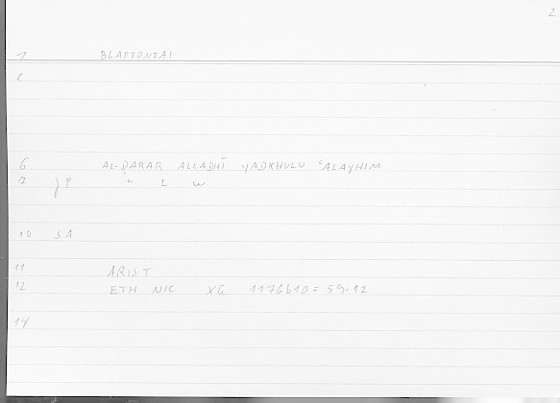 2
1 BLAPTONTAI
2
6 AL-ḌARAR ALLADHĪ YADKHULU ʿALAYHIM
7 JP L W
10 SA
11 ARIST
12 ETH NIC XG 1176b10 = 59.12
14